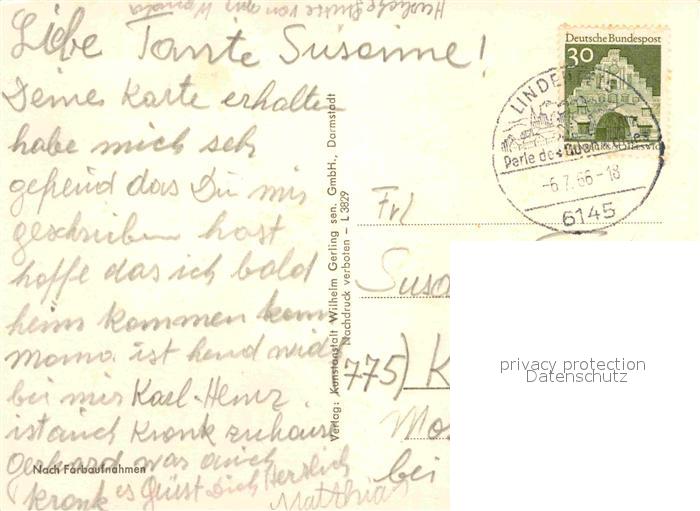 Herzliche Grüße von Mama
Liebe Tante Susanne!
Deine Karte erhalten
habe mich sehr
gefreud das Du mir
geschrieben hast
hoffe das ich bald
heim kommen kann
Mama ist heud wid
bei mir Karl-Heinz
ist auch kronk zuhaus
Gerhard was auch
kronk es grüst Dich Herzlich
Matthias
Nach Farbaufnahmen
Verlag: Kunstanstalt Wilhelm Gerling sen. GmbH., Darmstadt
Nachdruck verboten – L 3829
Deutsche Bundespost
30
LINDENFELS
Perle des Odenwaldes
-6.7.66-18
6145
Frl
Susa
775) K
Mo
bei
privacy protection
Datenschutz